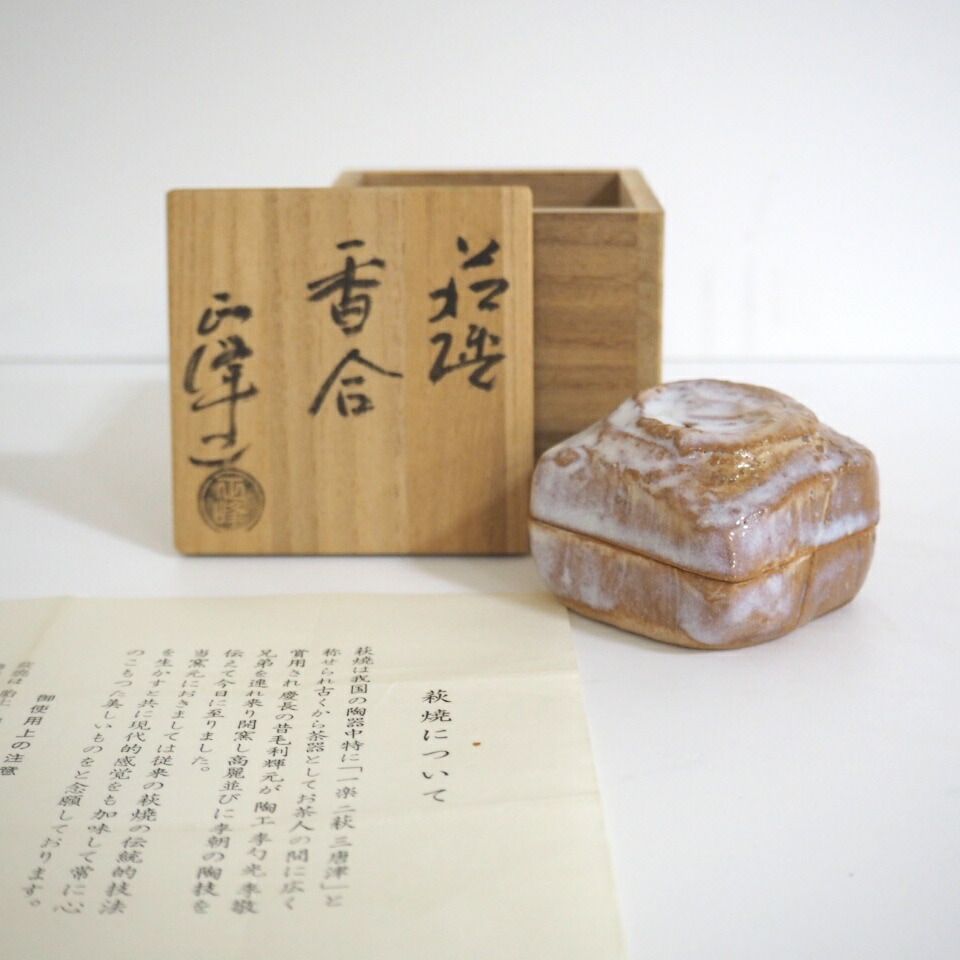 萩焼
香合
萩焼について
萩焼は我国の陶器中特に「一楽二萩三唐津」と
称せられ古くから茶器としてお茶人の間に広く
賞用され慶長の昔毛利輝元が陶工李勺光李敬
兄弟を連れ来り開窯し高麗並びに李朝の陶技を
伝えて今日に至りました。
当窯元におきましては従来の萩焼の伝統的技法
を生かすと共に現代的感覚をも加味して常に心
のこもつた美しいものをと念願しております。
御使用上の注意